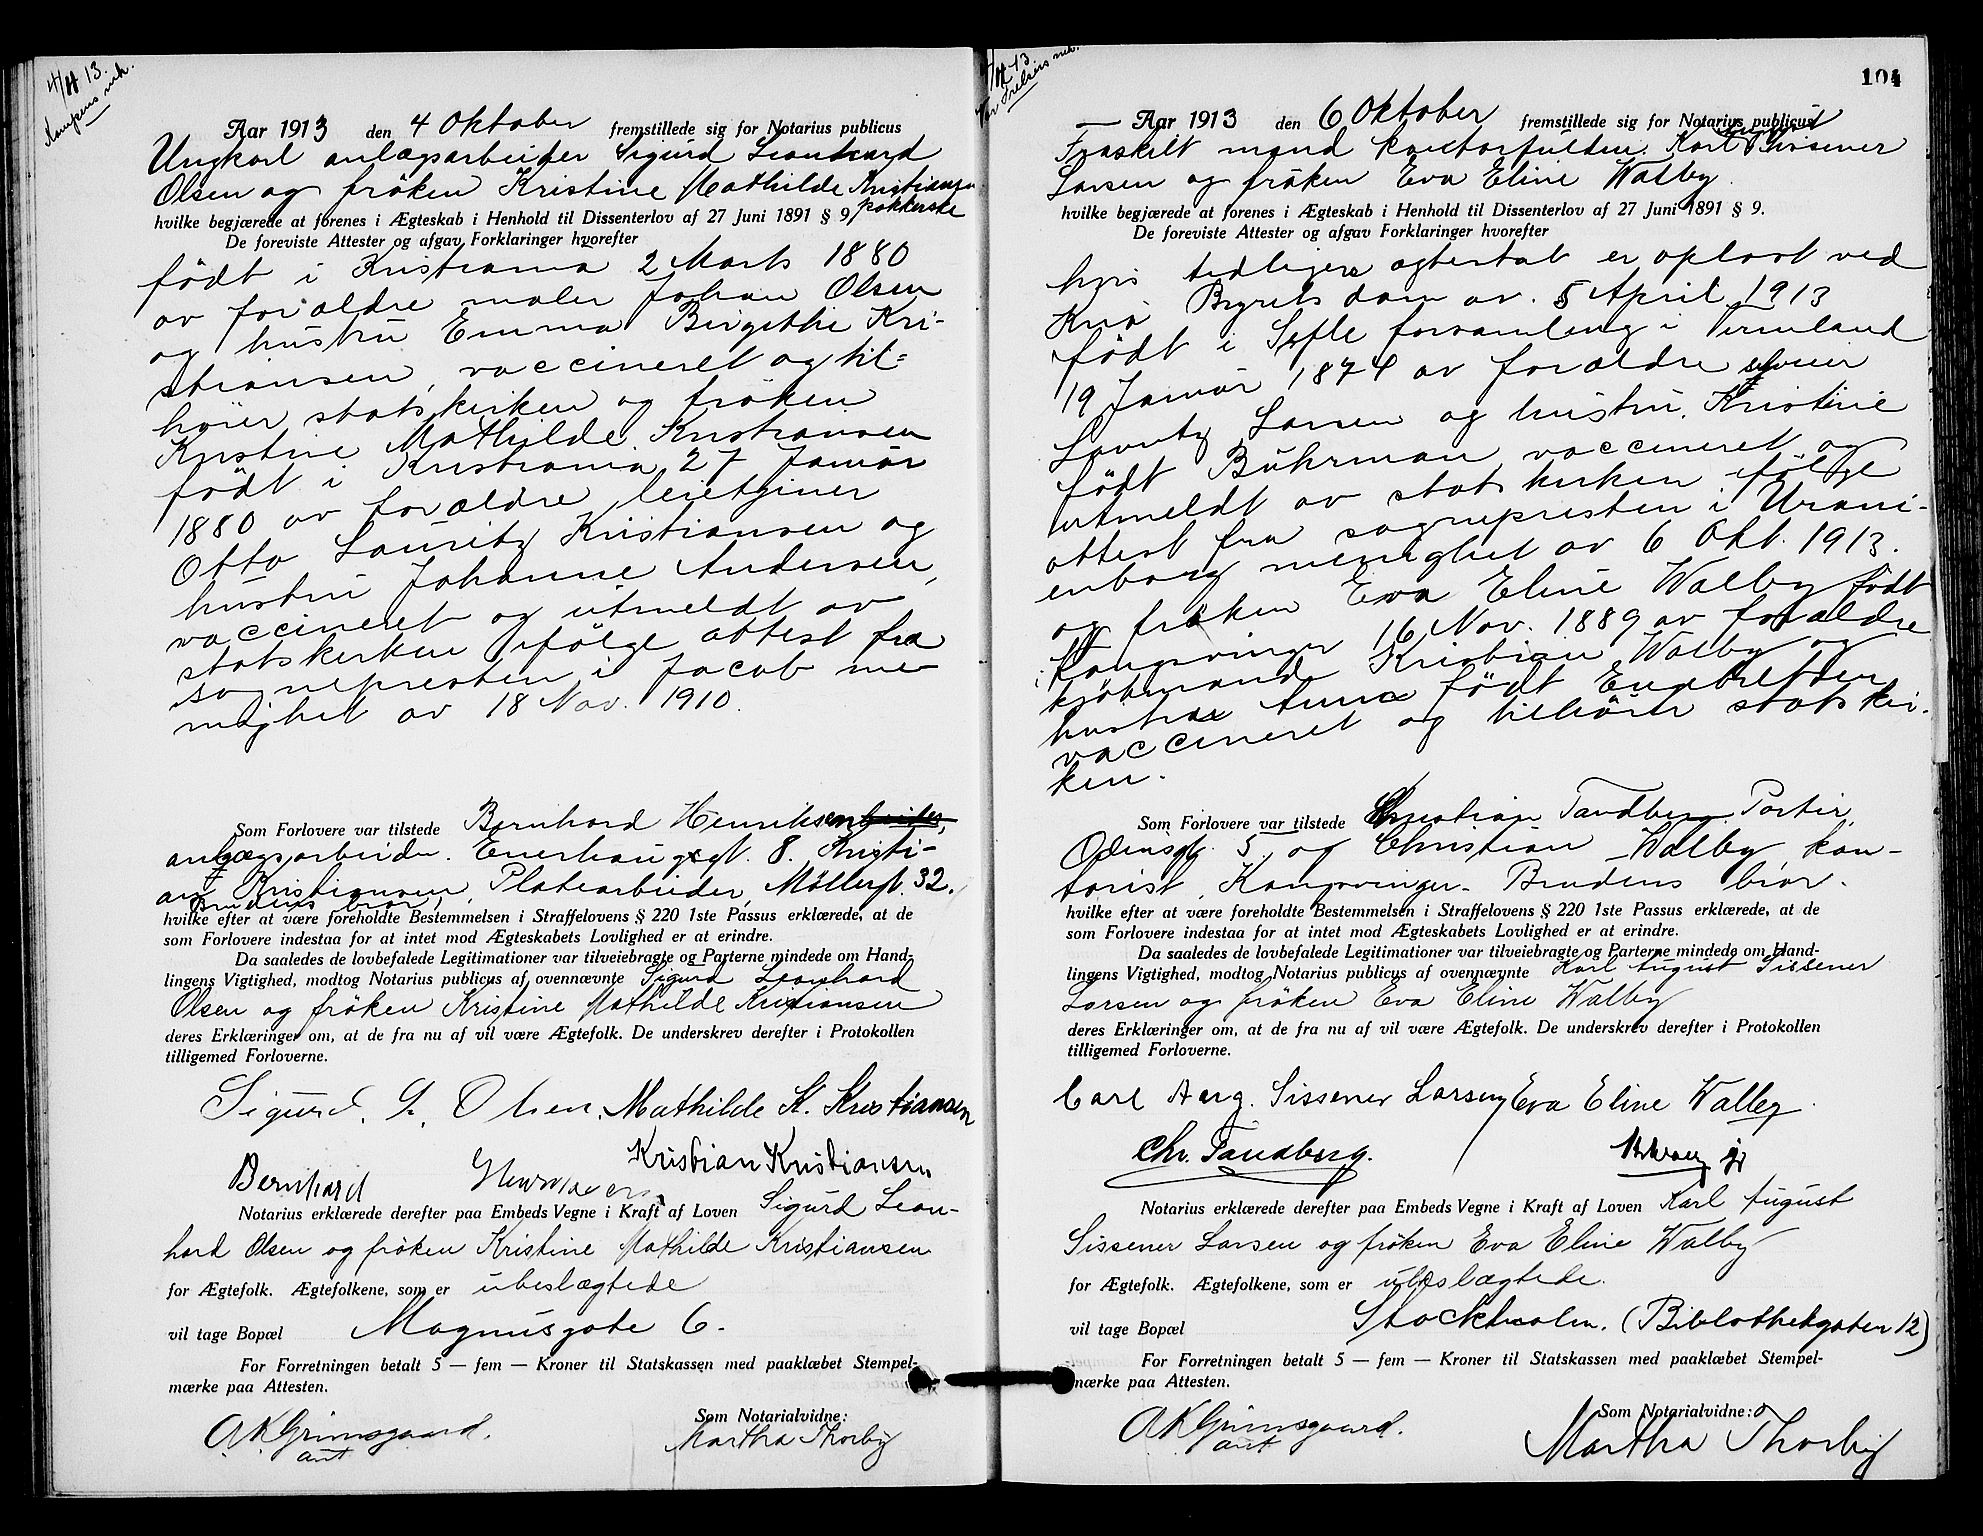 4/11 13.
Kampens mh.
Aar 1913 den 4 Oktober fremstillede sig for Notarius publicus
Ungkarl anlægsarbeider Sigurd Leonhard
Olsen og frøken Kristine Mathilde Kristiansen
pakkerske
hvilke begjærede at forenes i Ægteskab i Henhold til Dissenterlov af 27 Juni 1891 § 9,
De foreviste Attester og afgav Forklaringer hvorefter
födt i Kristiania 2 Marts 1880
av forældre maler Johan Olsen
og hustru Emma Birgithe Kri-
stiansen, vaccineret og til=
hører statskirken og fröken
Kristine Mathilde Kristiansen
födt i Kristiania 27 Januar
1880 av forældre leietjener
Otto Lauritz Kristiansen og
hustru Johanne Andersen,
vaccineret og utmeldt av
statskirken ifölge attest fra
sognepresten i Jacob me
nighet av 18 Nov. 1910.
Som Forlovere var tilstede Bernhard Henriksen
anlægsarbeider. Enerhauggt. 8. Kristi-
an Kristiansen, Platearbeider, Möllergt. 32.
Brudens bror,
hvilke efter at være foreholdte Bestemmelsen i Straffelovens § 220 1ste Passus erklærede, at de
som Forlovere indestaa for at intet mod Ægteskabets Lovlighed er at erindre.
Da saaledes de lovbefalede Legitimationer var tilveiebragte og Parterne mindede om Hand-
lingens Vigtighed, modtog Notarius publicus af ovennævnte Sigurd Leonhard
Olsen og fröken Kristine Mathilde Kristiansen
deres Erklæringer om, at de fra nu af vil være Ægtefolk. De underskrev derefter i Protokollen
tilligemed Forloverne.
Sigurd. L. Olsen. Mathilde K. Kristiansen
Kristian Kristiansen
Bernhard Henriksen
Notarius erklærede derefter paa Embeds Vegne i Kraft af Loven Sigurd Leon-
hard Olsen og fröken Kristine Mathilde Kristiansen
for Ægtefolk. Ægtefolkene, som er ubeslægtede
vil tage Bopæl Magnusgate 6.
For Forretningen betalt 5 — fem — Kroner til Statskassen med paaklæbet Stempel-
mærke paa Attesten.
Som Notarialvidne:
AKGrimsgaard.
aut
Martha Thorby
104
4/11 13
Vor Frelsers mh.
Aar 1913 den 6 Oktober fremstillede sig for Notarius publicus
August
Fraskilt mand Karl Sissener
Larsen og fröken Eva Eline Walby.
hvilke begjærede at forenes i Ægteskab i Henhold til Dissenterlov af 27 Juni 1891 § 9.
De foreviste Attester og afgav Forklaringer hvorefter
hvis tidligere egteskab er oplöst ved
Kria Byrets dom av. 5 April 1913
födt i Sefle forsamling i Vermland
19 Januar 1874 av forældre
Lauritz Larsen og hustru Kristine
födt Buhrman vaccineret og
utmeldt av statskirken ifölge
attest fra sognepresten i Urani-
enborg menighet av 6 Okt. 1913.
og frøken Eva Eline Walby födt
i Kongsvinger 16 Nov. 1889 av forældre
kjöbmand Kristian Walby og
hustru Anna födt Engebretsen
vaccineret og tilhörer statskir-
ken.
Som Forlovere var tilstede Christian Tandberg Portier,
Odinsgt. 5. og Christian Walby, kon-
torist, Kongsvinger. Brudens bror.
hvilke efter at være foreholdte Bestemmelsen i Straffelovens § 220 1ste Passus erklærede, at de
som Forlovere indestaa for at intet mod Ægteskabets Lovlighed er at erindre.
Da saaledes de lovbefalede Legitimationer var tilveiebragte og Parterne mindede om Hand-
lingens Vigtighed, modtog Notarius publicus af ovennævnte Karl August Sissener
Larsen og fröken Eva Eline Walby
deres Erklæringer om, at de fra nu af vil være Ægtefolk. De underskrev derefter i Protokollen
tilligemed Forloverne.
Carl Aug. Sissener Larsen Eva Eline Walby.
Chr. Tandberg.
Notarius erklærede derefter paa Embeds Vegne i Kraft af Loven Karl August
Sissener Larsen og fröken Eva Eline Walby
for Ægtefolk. Ægtefolkene, som er ubeslægtede.
vil tage Bopæl Stockholm. (Bibliotheksgaten 12)
For Forretningen betalt 5 — fem — Kroner til Statskassen med paaklæbet Stempel-
mærke paa Attesten.
Som Notarialvidne:
AKGrimsgaard.
aut
Martha Thorby